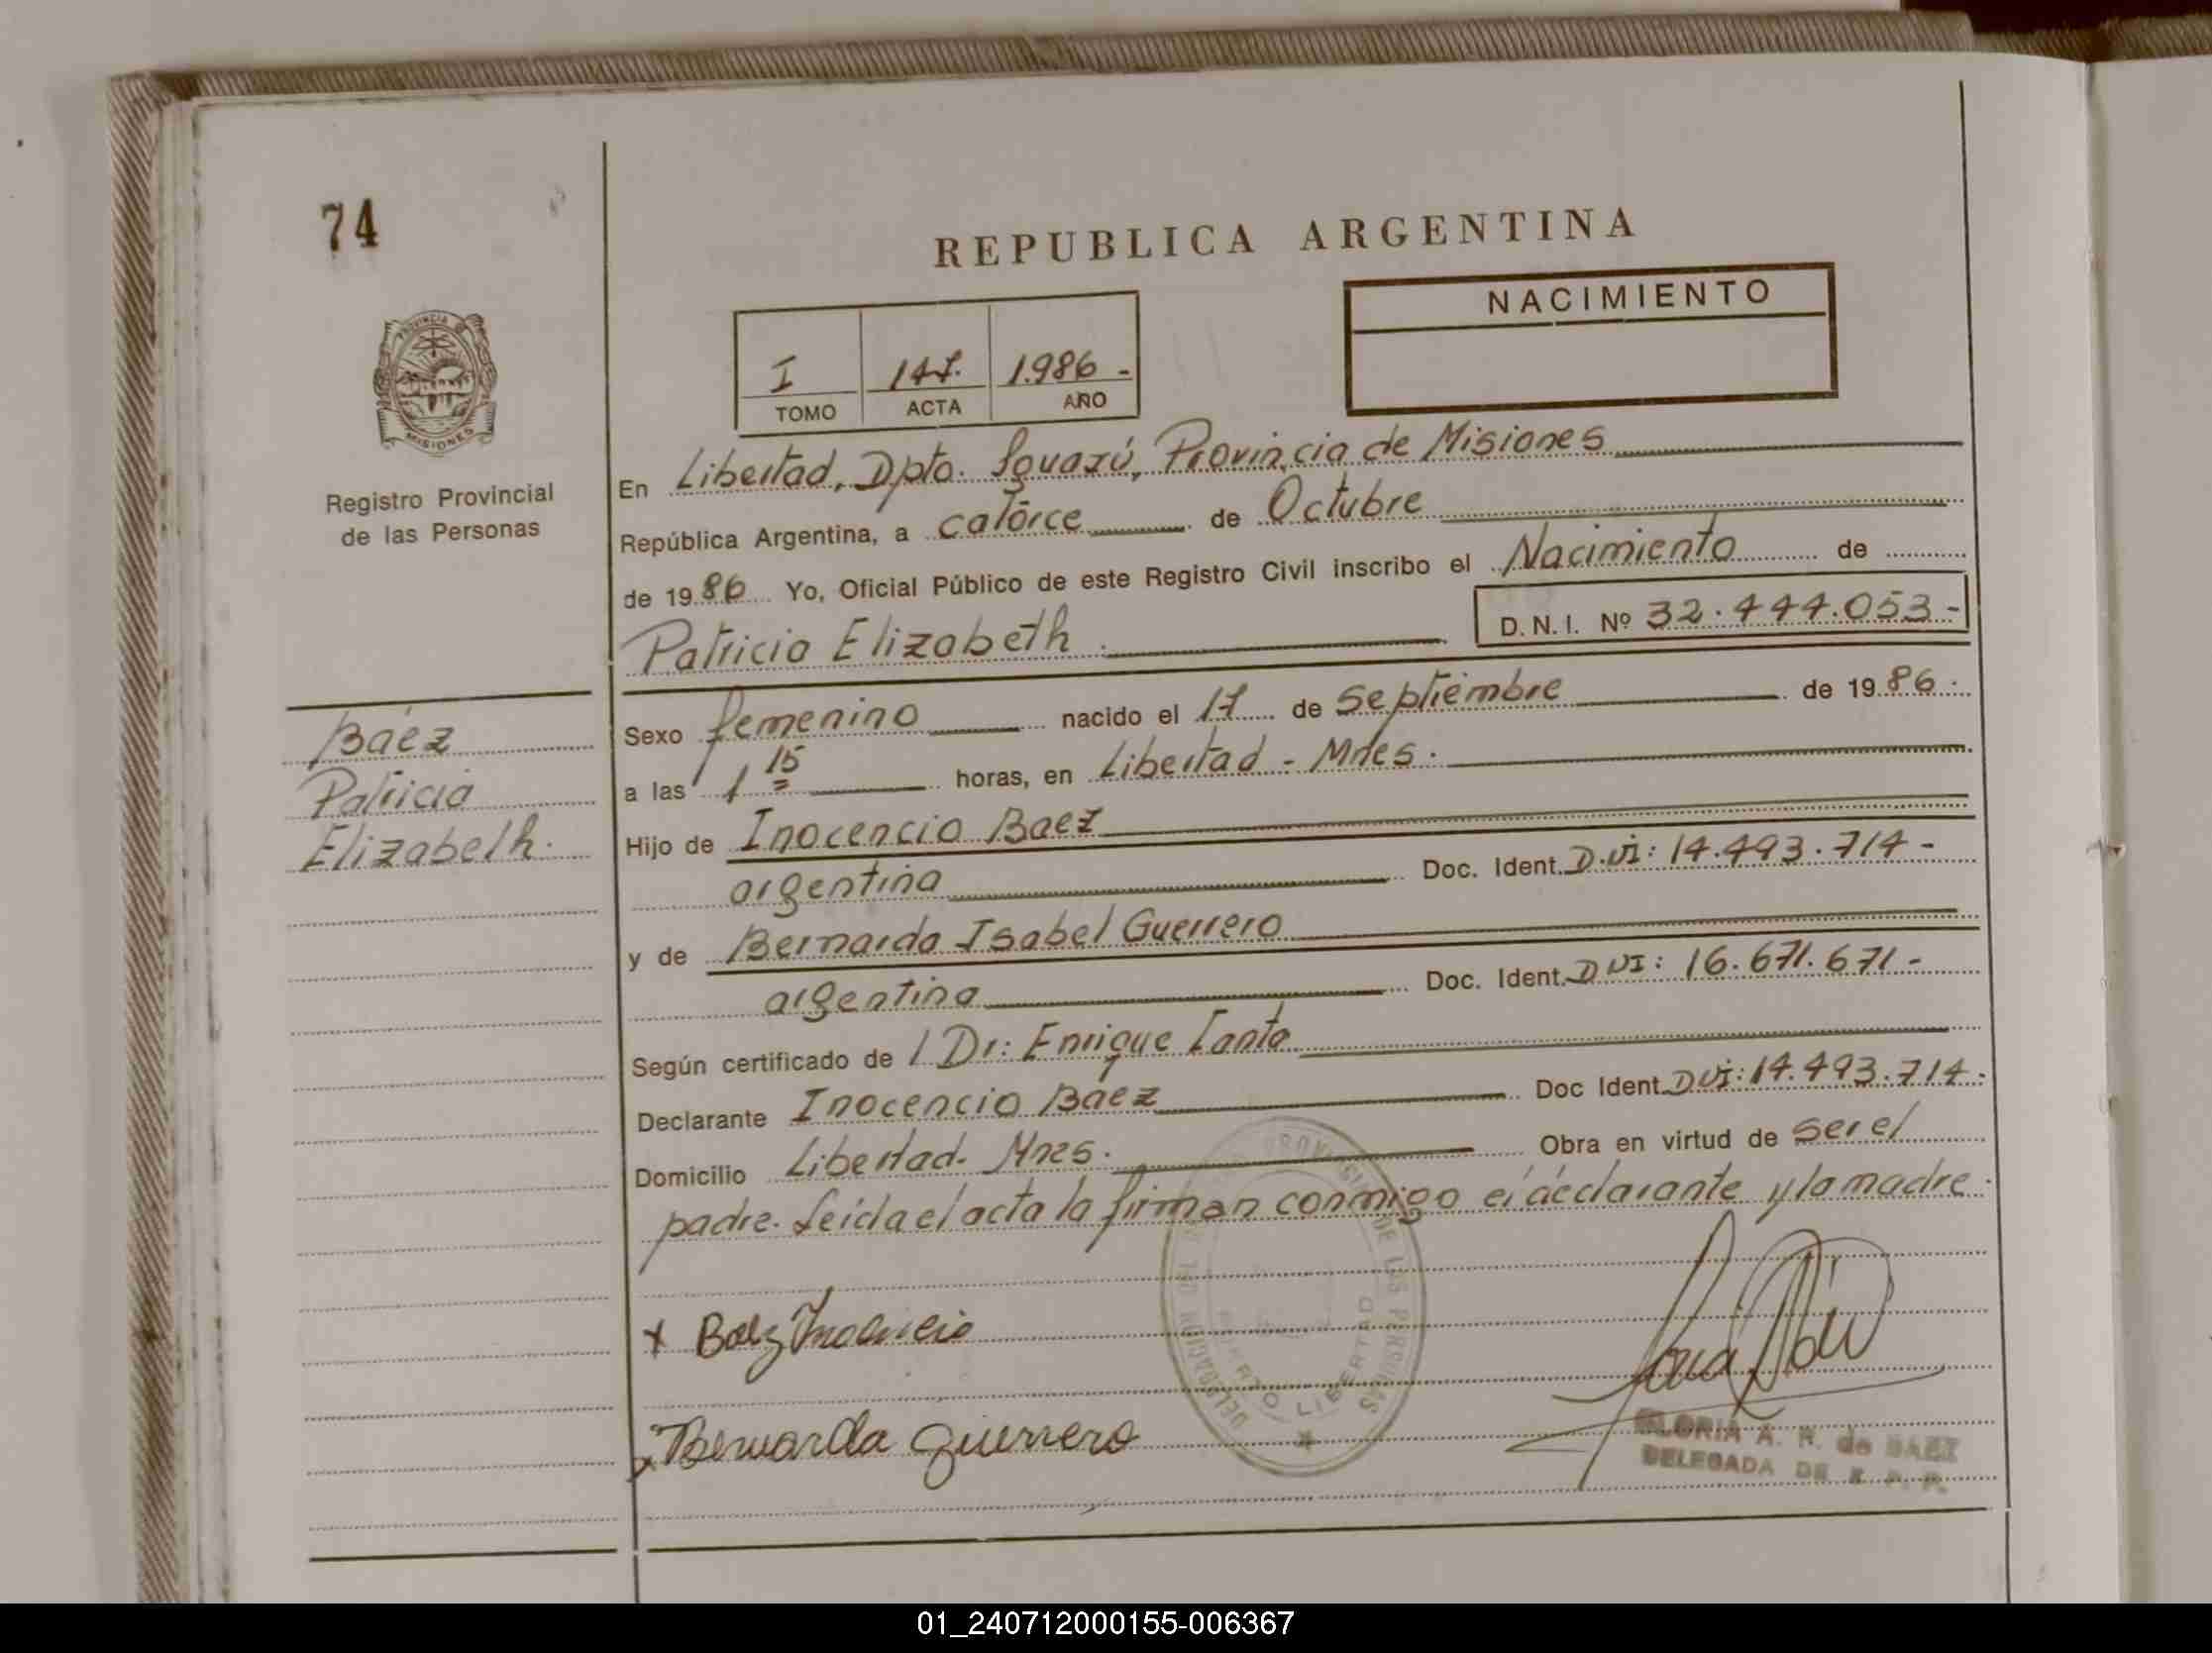 74
REPUBLICA ARGENTINA
NACIMIENTO
I 147. 1.986 -
TOMO ACTA AÑO
PROVINCIA
MISIONES
Registro Provincial
de las Personas
En Libertad, Dpto. Iguazú, Provincia de Misiones
República Argentina, a catorce de Octubre
de 1986 Yo, Oficial Público de este Registro Civil inscribo el Nacimiento de
Patricia Elizabeth. D. N. I. Nº 32.444.053-
Báez
Patricia
Elizabeth.
Sexo femenino nacido el 17 de Septiembre de 1986.
a las 1 15 horas, en Libertad - Mnes.
Hijo de Inocencio Baez
argentina Doc. Ident. D.NI: 14.493.714-
y de Bernarda Isabel Guerrero
argentina Doc. Ident. DNI: 16.671.671-
Según certificado de / Dr: Enrique
Declarante Inocencio Báez Doc Ident. DNI: 14.493.714-
Domicilio Libertad. Mnes. Obra en virtud de ser el
padre. Leída el acta la firman conmigo el declarante y la madre.
x Baez Inocencio
x Bernarda Guerrero
LIBERTAD
DE LAS PERSONAS
DELEGACION
GLORIA A. R. de BAEZ
DELEGADA DE R. P. P.
01_240712000155-006367